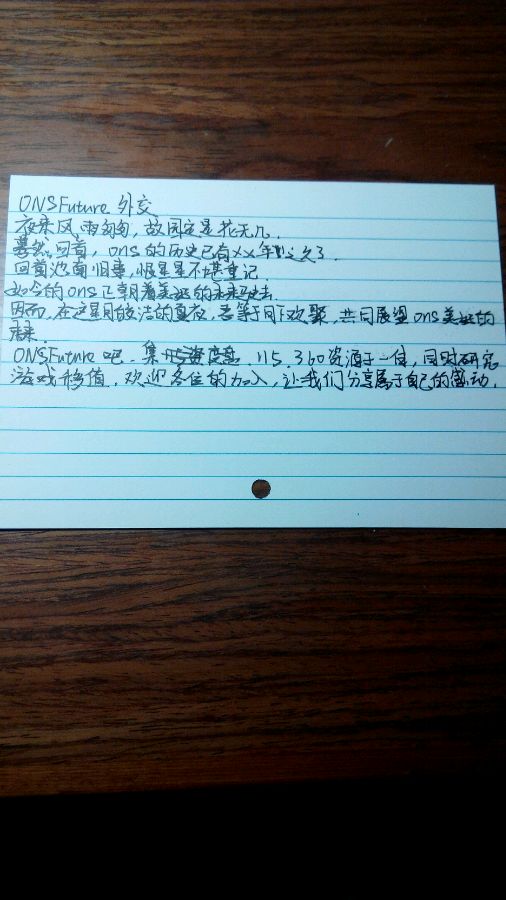 ONSFuture 外交
夜来风雨匆匆，故园定是花无几.
蓦然回首，ons的历史已有××年之久了.
回首沧南旧事，恨星星不堪重记.
如今的ONS正朝着美好的未来驶去.
因而，在这星月皎洁的夏夜，吾等于月下欢聚，共同展望ons美好的
未来.
ONSFuture吧.集 115.360资源于一体，同时研究
游戏移值，欢迎各位的加入，让我们分享属于自己的感动.